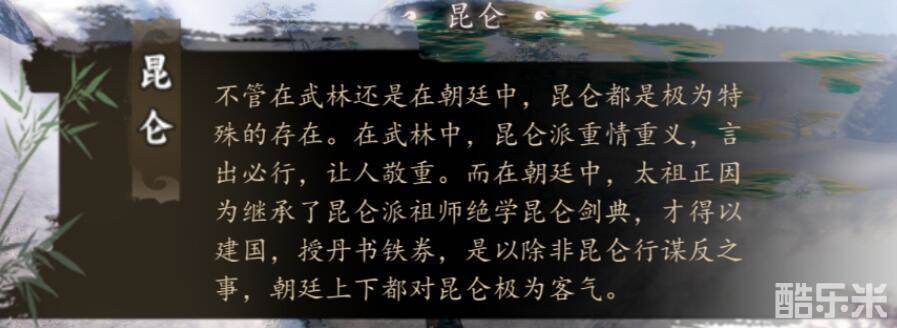 昆仑
昆仑
不管在武林还是在朝廷中，昆仑都是极为特
殊的存在。在武林中，昆仑派重情重义，言
出必行，让人敬重。而在朝廷中，太祖正因
为继承了昆仑派祖师绝学昆仑剑典，才得以
建国，授丹书铁券，是以除非昆仑行谋反之
事，朝廷上下都对昆仑极为客气。
酷乐米